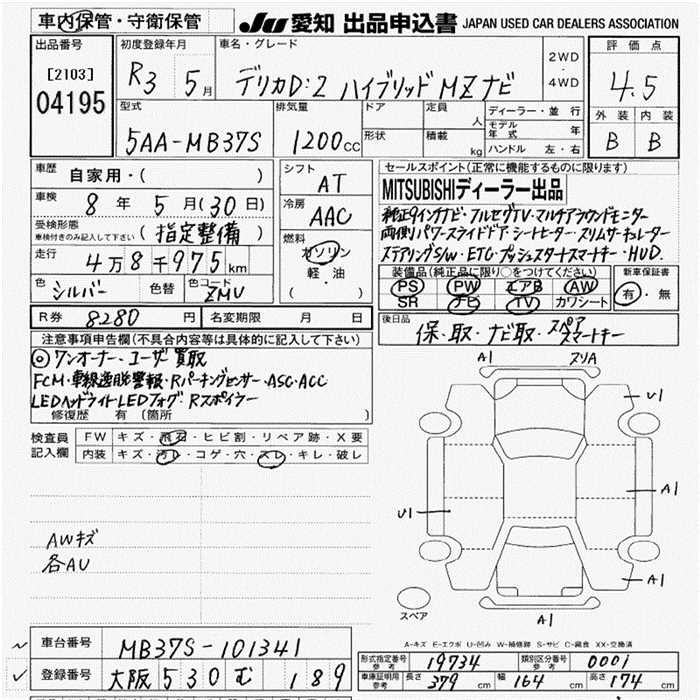 車内保管・守衛保管
JU 愛知 出品申込書 JAPAN USED CAR DEALERS ASSOCIATION
出品番号 初度登録年月 車名・グレード 評価点
[2103] R3 5月 デリカD:2 ハイブリッド MZ ナビ 2WD・4WD 4.5
04195 型式 排気量 ドア 定員 人 ディーラー・並行 外装 内装
モデル年式 年
5AA-MB37S 1200cc 形状 積載 kg ハンドル 左・右 B B
車歴 自家用・( ) シフト AT セールスポイント(正常に機能するものに限ります)
MITSUBISHIディーラー出品
車検 8年 5月(30日) 冷房 AAC 純正9インチナビ・フルセグTV・マルチアラウンドモニター
受検形態 車検付きのみ記入して下さい (指定整備) 燃料 ガソリン 両側パワースライドドア・シートヒーター・スリムサーキュレーター
走行 4万8千975km 軽・油 ステアリングS/W・ETC・プッシュスタートスマートキー・HUD.
( ) 装備品(純正品に限り○をつけてください) 新車保証書
色 シルバー 色替 色コード ZMU PS PW エアB AW 有・無
SR ナビ TV カワシート
R券 8280円 名変期限 月 日 後日品
保・取・ナビ取・スペアスマートキー
注意事項申告欄(不具合内容等は具体的に記入して下さい)
◎ワンオーナー・ユーザー買取
FCM・車線逸脱警報・Rパーキングセンサー・ASC・ACC
LEDヘッドライト・LEDフォグ・Rスポイラー
修復歴 有 (箇所 )
検査員記入欄 FW キズ・飛石・ヒビ割・リペア跡・X要
内装 キズ・汚レ・コゲ・穴・スレ・キレ・破レ
A1 スリA
U1
A1
U1
AWキズ
各AU
A1
スペア
A1
A-キズ E-エクボ U-凹み W-補修跡 S-サビ C-腐食 XX-交換済
車台番号 MB37S-101341
形式指定番号 参考 19734 類別区分番号 参考 0001
登録番号 大阪 530 む 189
車庫証明用 参考 長さ 379cm 幅 164cm 高さ 174cm